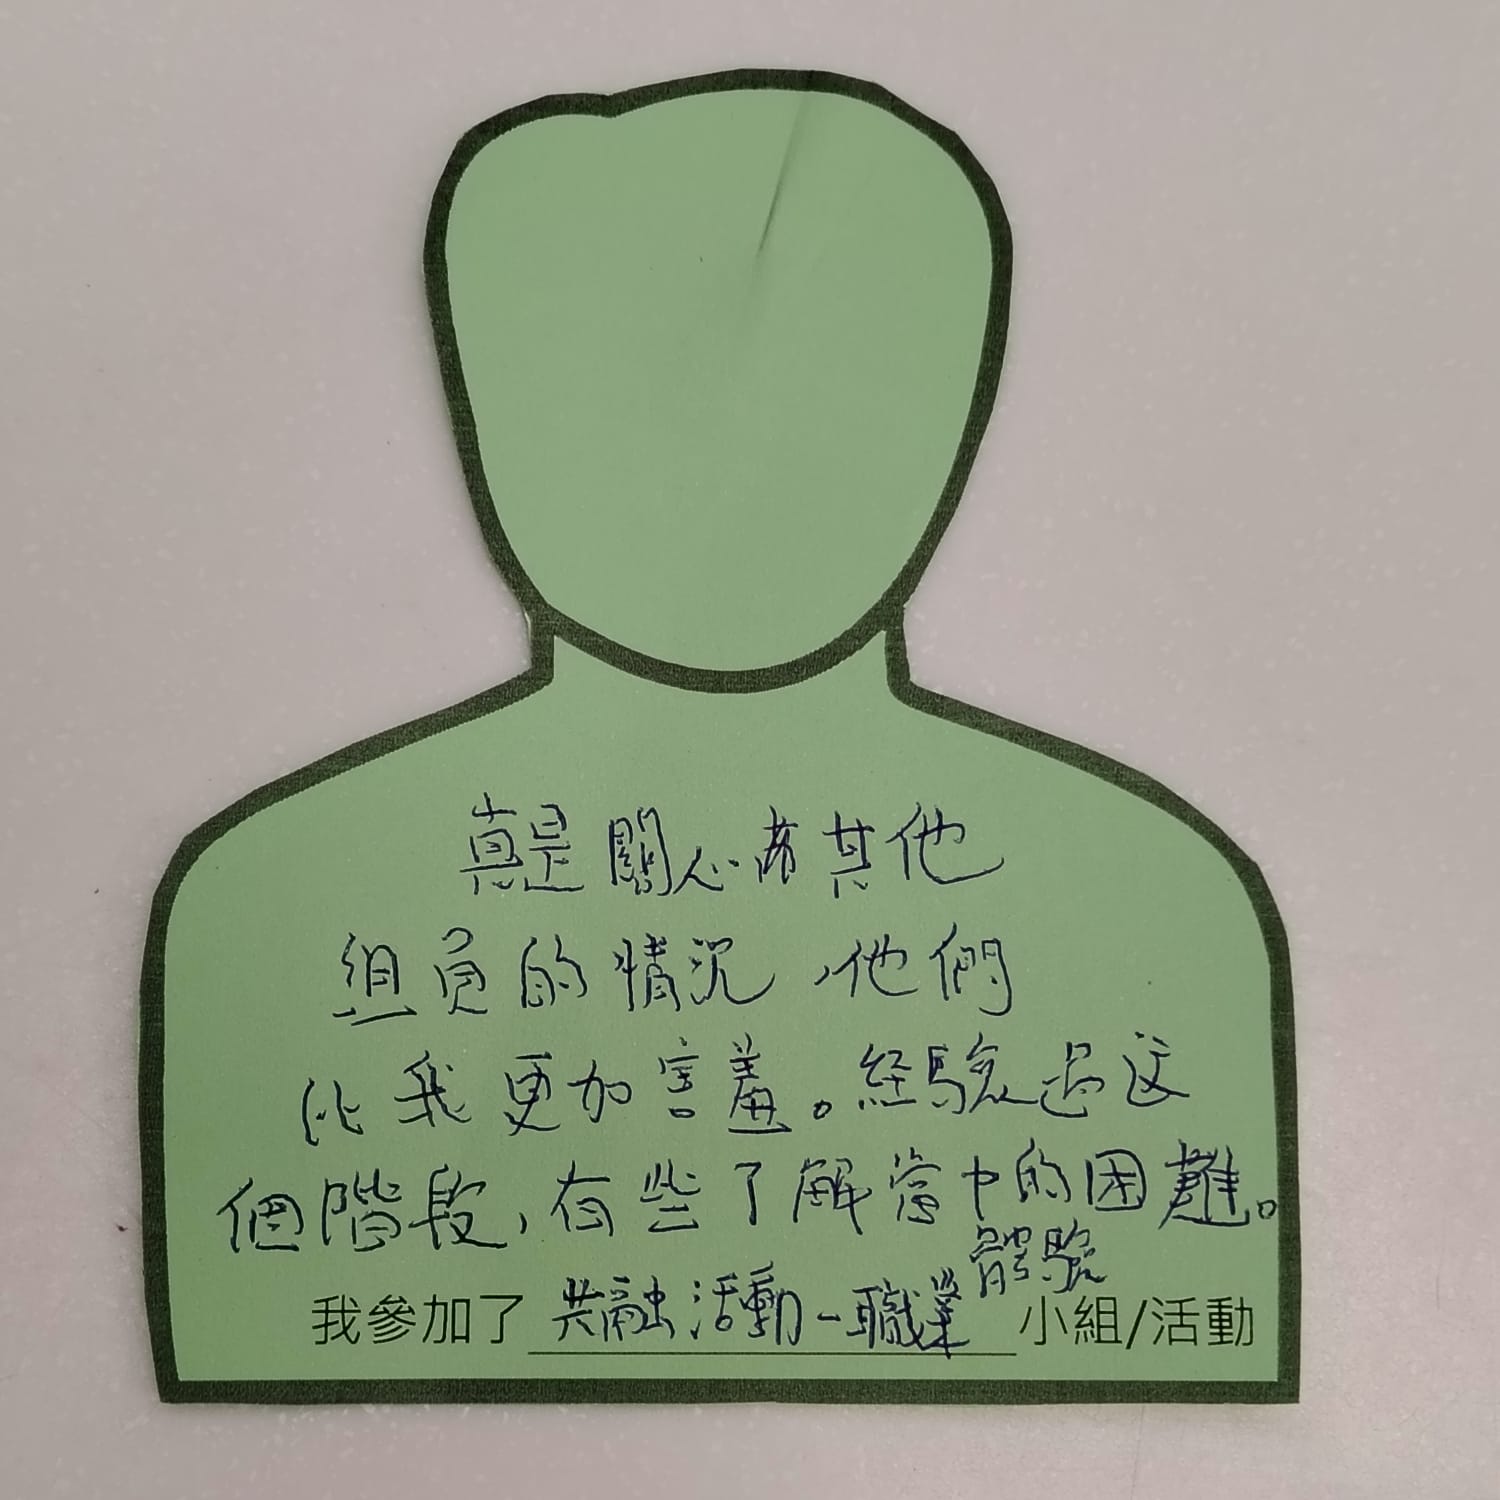 真是關心著其他
組員的情況，他們
比我更加害羞。經驗過這
個階段，有些了解當中的困難。
我參加了 共融活動-職業體驗 小組/活動